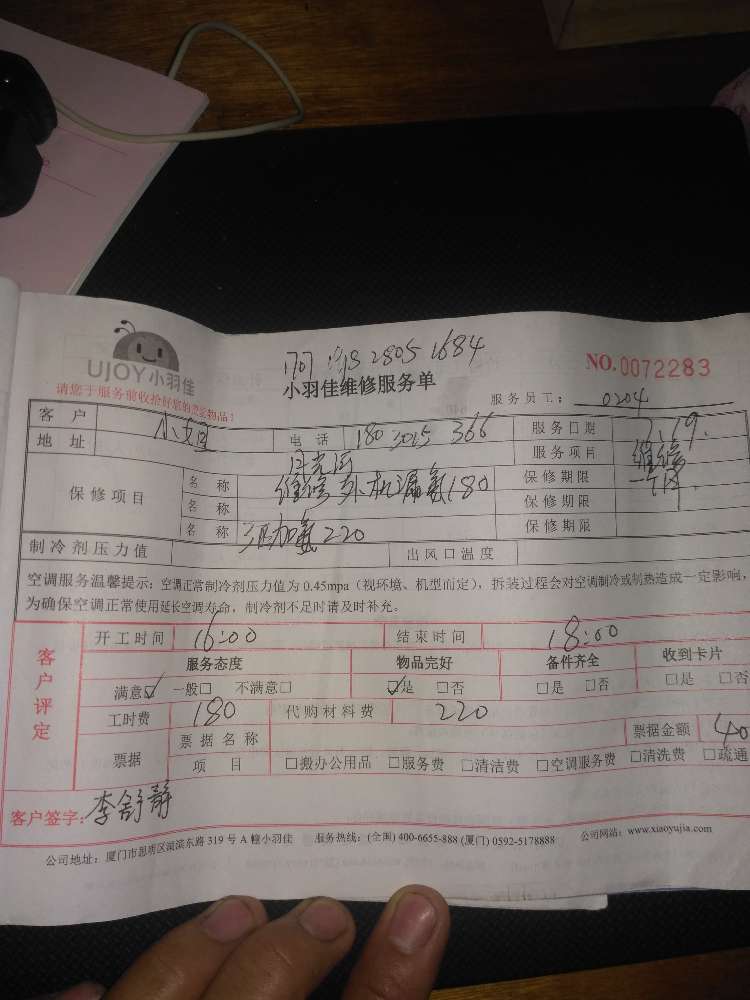 UJOY小羽佳
2805 1684
NO.0072283
小羽佳维修服务单
请您于服务前收拾好您的贵重物品！
服务员工： 0204
客 户 小 电 话 180 3015 366 服务日期 7.19.
地 址 服务项目 维修
保修项目 名 称 维修外机漏氟180 保修期限 一年
名 称 保修期限
名 称 加氟220 保修期限
制冷剂压力值 出风口温度
空调服务温馨提示：空调正常制冷剂压力值为 0.45mpa（视环境、机型而定），拆装过程会对空调制冷或制热造成一定影响，
为确保空调正常使用延长空调寿命，制冷剂不足时请及时补充。
客户评定
开工时间 16:00 结束时间 18:00
服务态度 物品完好 备件齐全 收到卡片
满意☑ 一般□ 不满意□ ☑是 □否 □是 □否 □是 □否
工时费 180 代购材料费 220
票据 票据名称 票据金额 40
项 目 □搬办公用品 □服务费 □清洁费 □空调服务费 □清洗费 □疏通
客户签字：李舒静
公司地址：厦门市思明区湖滨东路 319 号 A 幢小羽佳 服务热线：(全国) 400-6655-888 (厦门) 0592-5178888 公司网站：www.xiaoyujia.com